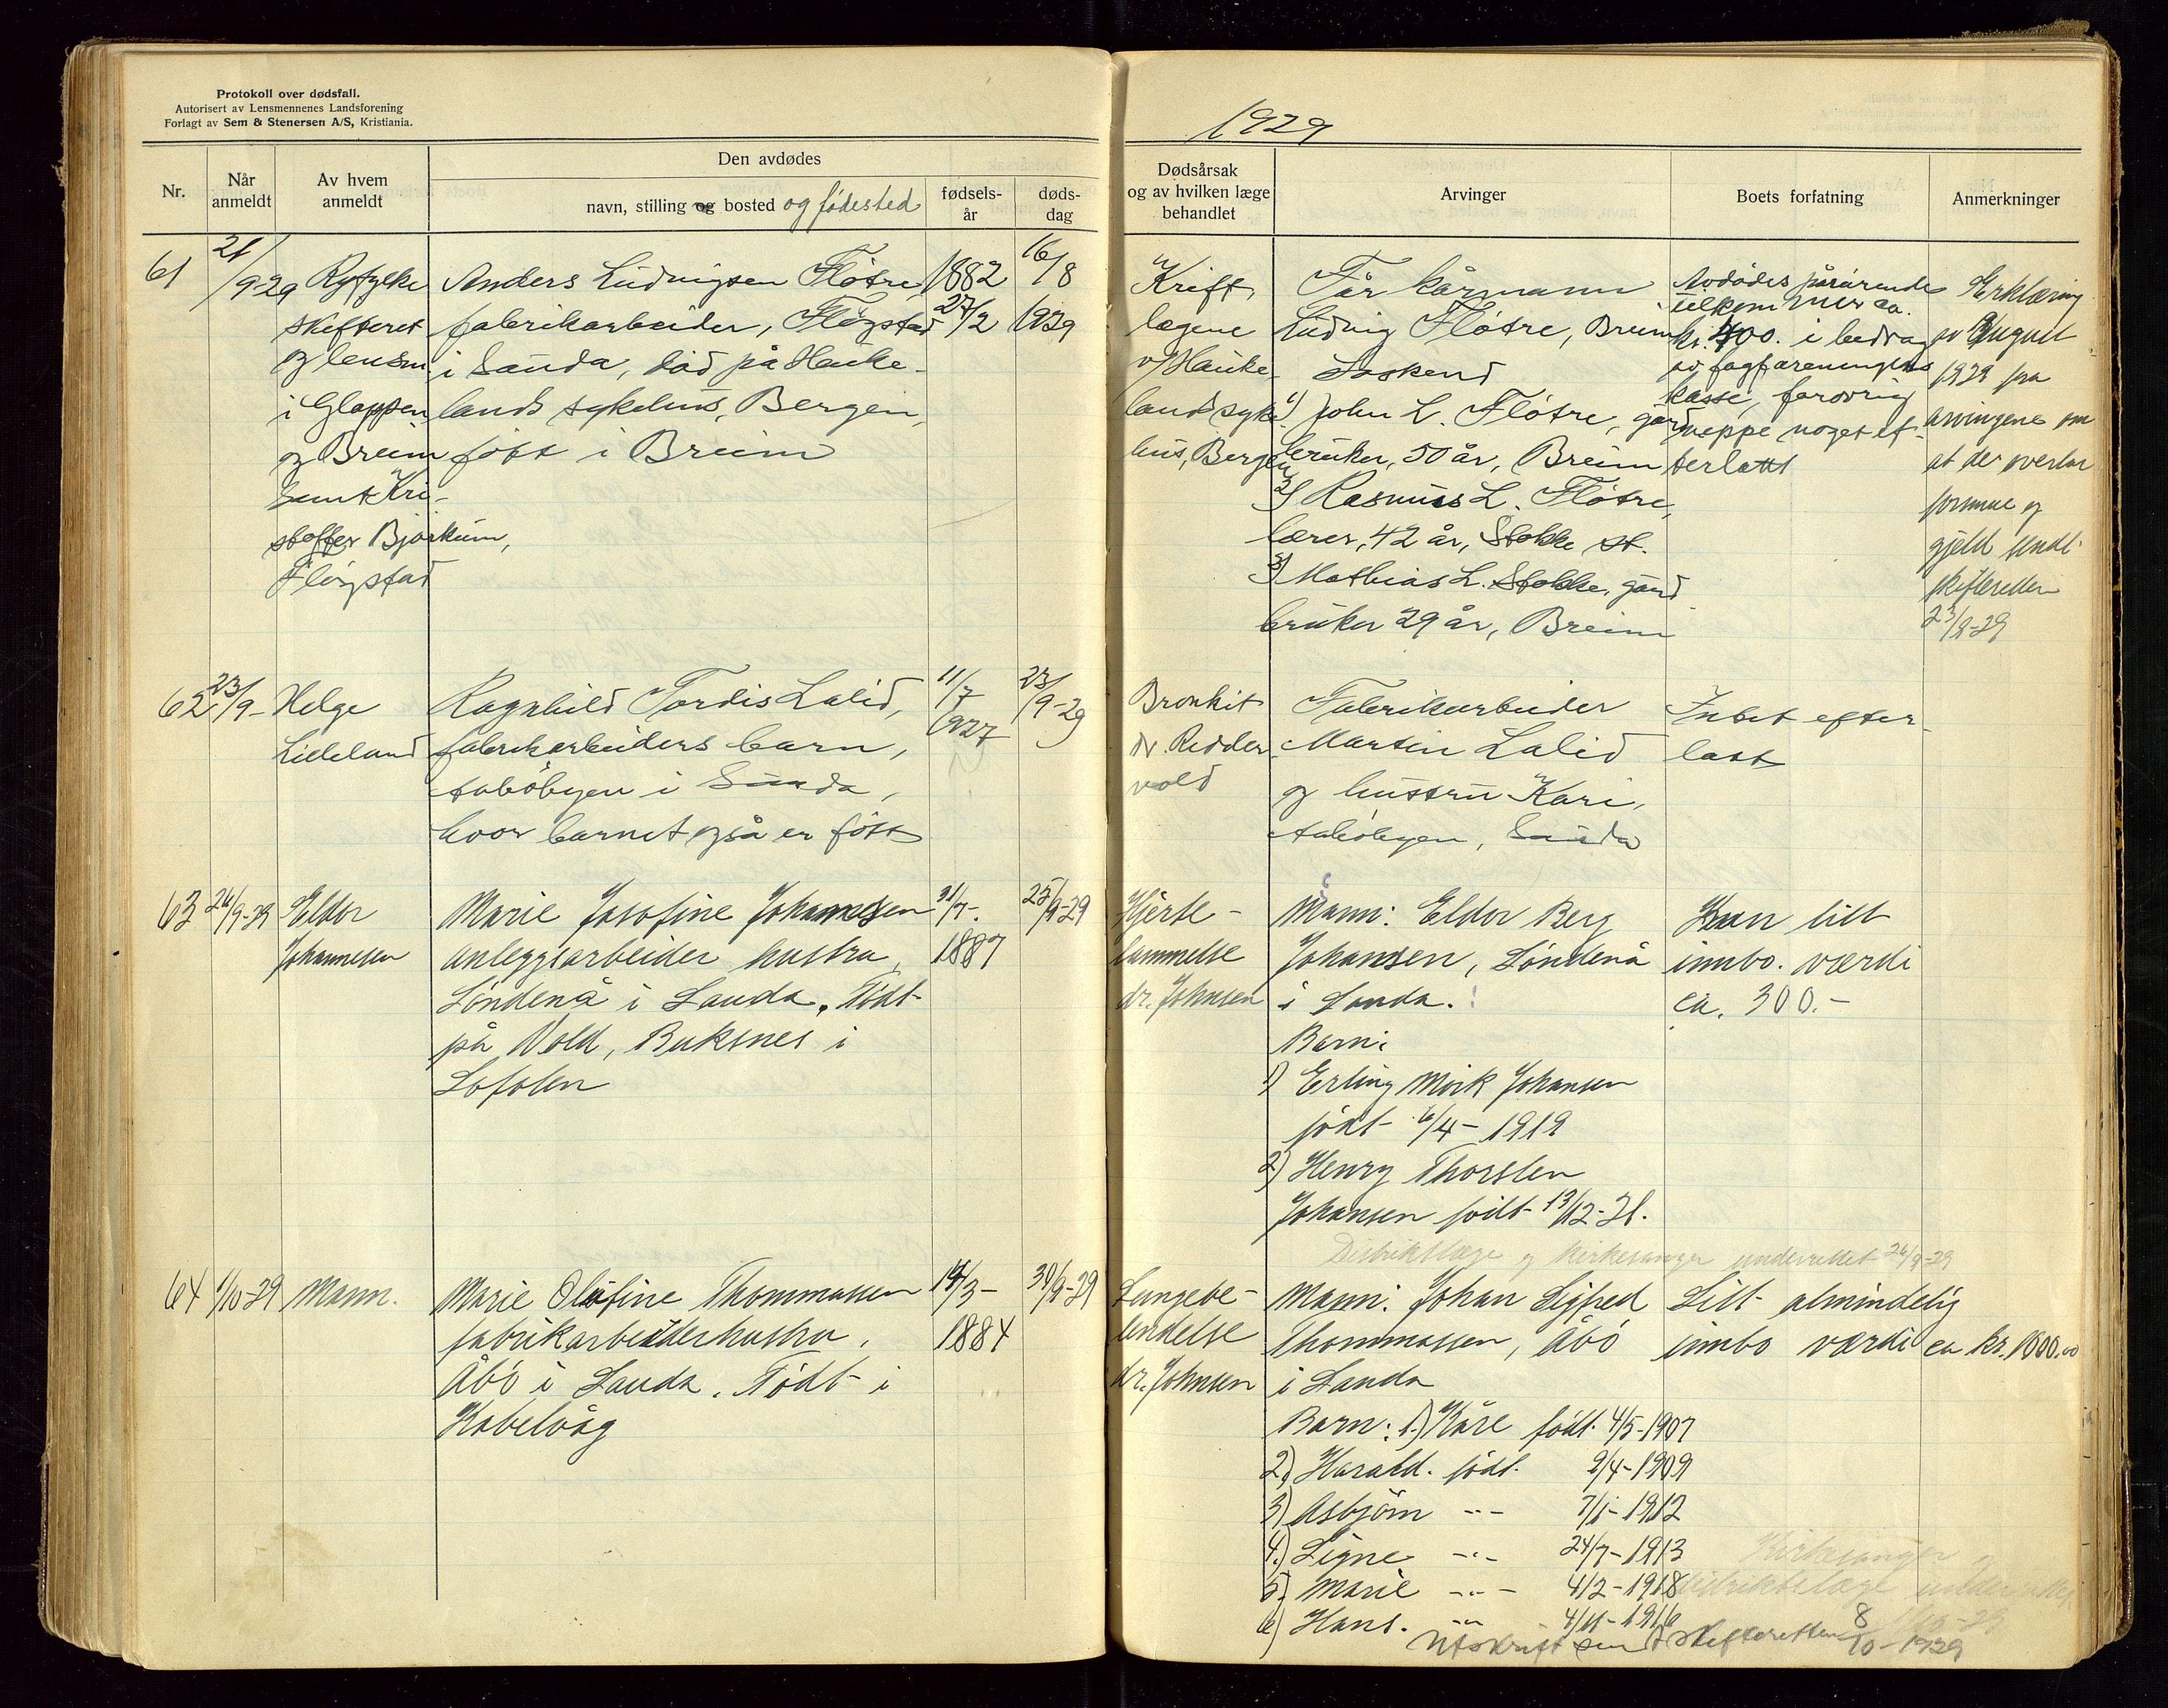 Protokoll over dødsfall.
Autorisert av Lensmennenes Landsforening
Forlagt av Sem & Stenersen A/S, Kristiania.
1929
Nr.
Når anmeldt
Av hvem anmeldt
Den avdødes
navn, stilling og bosted og fødested
fødsels-år
døds-dag
Dødsårsak
og av hvilken læge
behandlet
Arvinger
Boets forfatning
Anmerkninger
61
21/9-29
Ryfylke
skifteret
og lensm.
i Gloppen
og Breim
samt Kri-
stoffer Bjørkum,
Fløgstad
Anders Ludvigsen Fløtre,
fabrikarbeider, Fløgstad
i Sauda, død på Hauke-
lands sykehus, Bergen,
født i Breim
1882
27/2
16/8
1929
Kreft,
lægene
v/Hauke-
land syke-
hus, Bergen
Far kårmann
Ludvig Fløtre, Breim
Søskend
1) John L. Fløtre, gård
bruker, 50 år, Breim
2) Rasmus L. Fløtre,
lærer, 42 år, Stokke st.
3) Mathias L. Stokke, gård
bruker 29 år, Breim
Avdødes pårørende
tilkommer ca.
kr. 400. i bedrag
av fagforeningens
kasse, forøvrig
neppe noget ef-
terlatt
Erklæring
av August
1929 fra
arvingene om
at de overtar
formue og
gjeld sendt
skifteretten
23/9-29
62
23/9-
Helge
Lilleland
Ragnhild Tordis Lalid,
fabrikarbeiders barn,
Aabøbyen i Sauda,
hvor barnet også er født
11/7
1927
23/9-29
Bronkit
dr. Redder
vold
Fabrikarbeider
Martin Lalid
og hustru Kari,
Aabøbyen, Sauda
Intet efter-
latt
63
26/9-29
Eldor
Johannessen
Marie Josofine Johannsen
anleggsarbeider hustru,
Søndenå i Sauda. Født
på Vold, Buksnes i
Lofoten
31/7-
1887
25/9-29
Hjerte-
lammelse
dr. Johnsen
Mann: Eldor Berg
Johansen, Søndenå
i Sauda.
Barn:
1) Erling Mork Johansen
født 16/4-1919
2) Henry Thorsten
Johansen født 13/12-21.
Kun litt
innbo. værdi
ca. 300.-
Distriktslæge og kirkesanger underrettet 26/9-29
64
1/10-29
Mann.
Marie Olufine Thommassen
fabrikarbeiderhustru,
Åbø i Sauda. Født i
Kabelvåg
14/3-
1884
30/9-29
Lungebe-
tendelse
dr. Johnsen
Mann: Johan Sigfred
Thommassen, Åbø
i Sauda
Barn: 1.) Kåre født 4/5-1907
2) Harald. født. 9/4-1909
3) Asbjørn -"- 7/1-1912
4.) Signe -"- 24/7-1913
5. Marie -"- 4/2-1918
6) Hans. -"- 4/11-1916
Litt almindelig
innbo værdi ca kr. 1000.00
Kirkesanger og
distriktslæge underrettet
Utskrift sendt skifteretten 8/10-1929